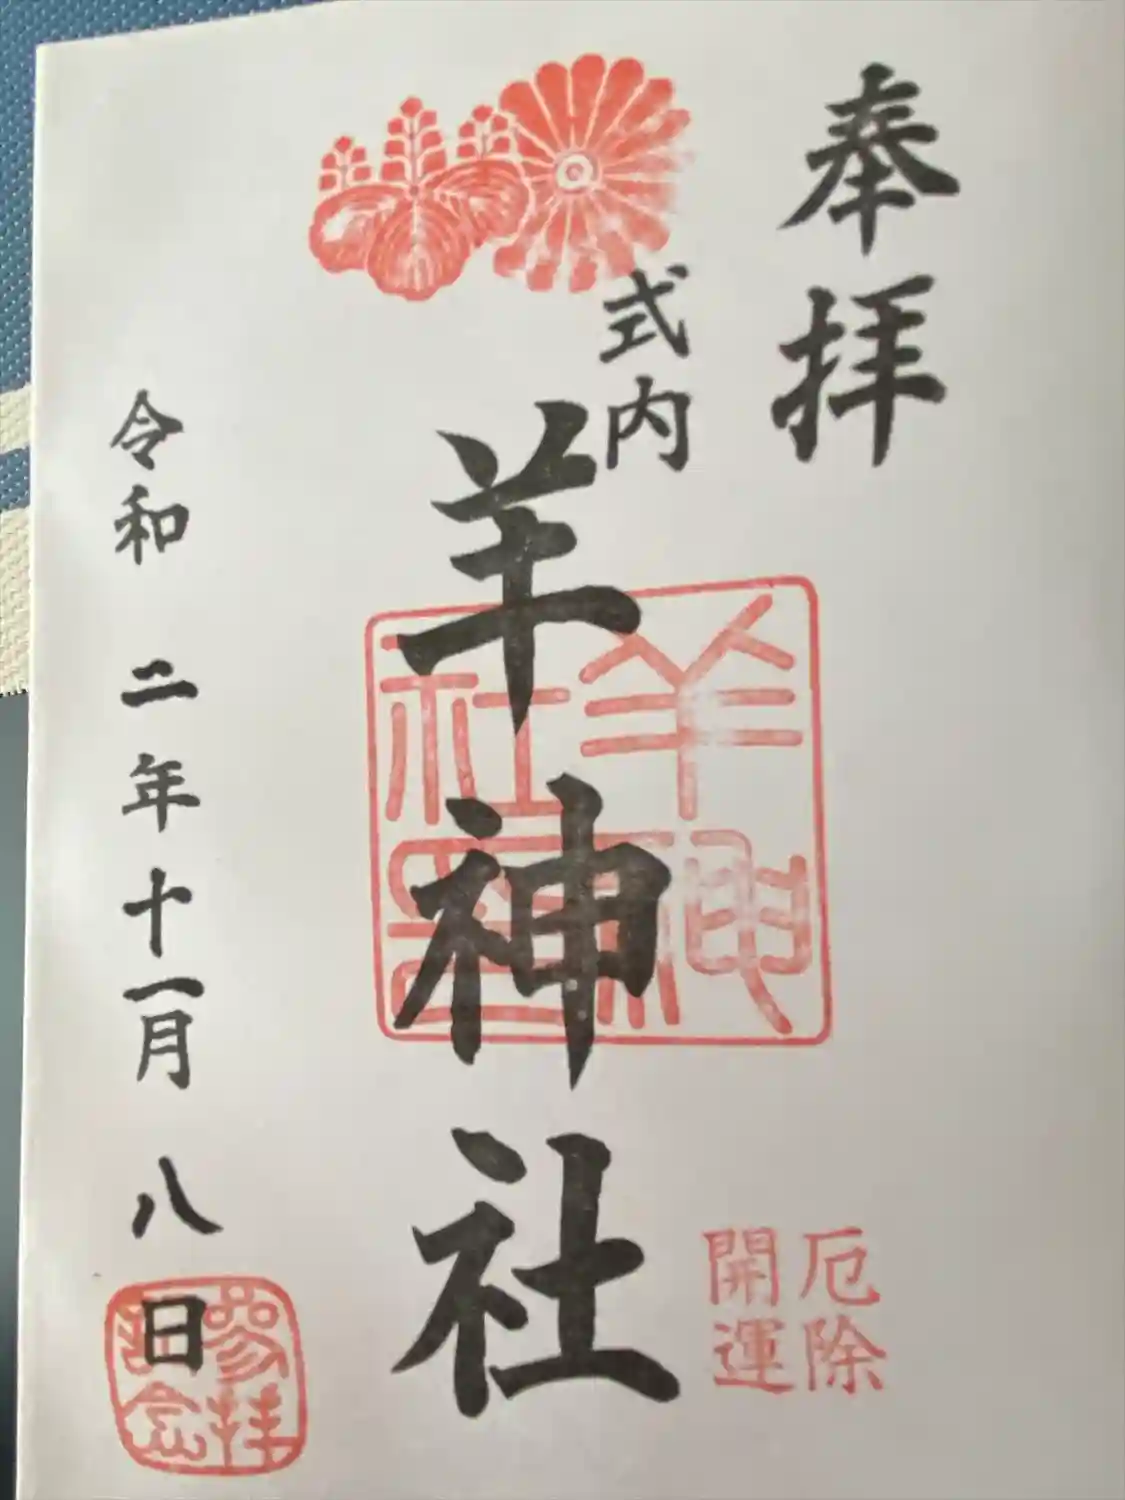 奉拝
式内
羊神社
羊神社印
厄除
開運
令和 二年十一月 八日
参拝
記念